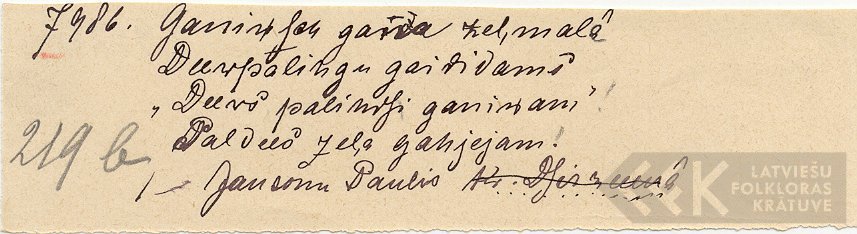 7986. Ganiņsch gaida zeļmalâ
Deevpaligu gaididams
„Deevs palihdsi ganiņam"!
Paldees zeļa gahjejam!
219 b
Jansonu Paulis
LATVIEŠU
FOLKLORAS
KRĀTUVE